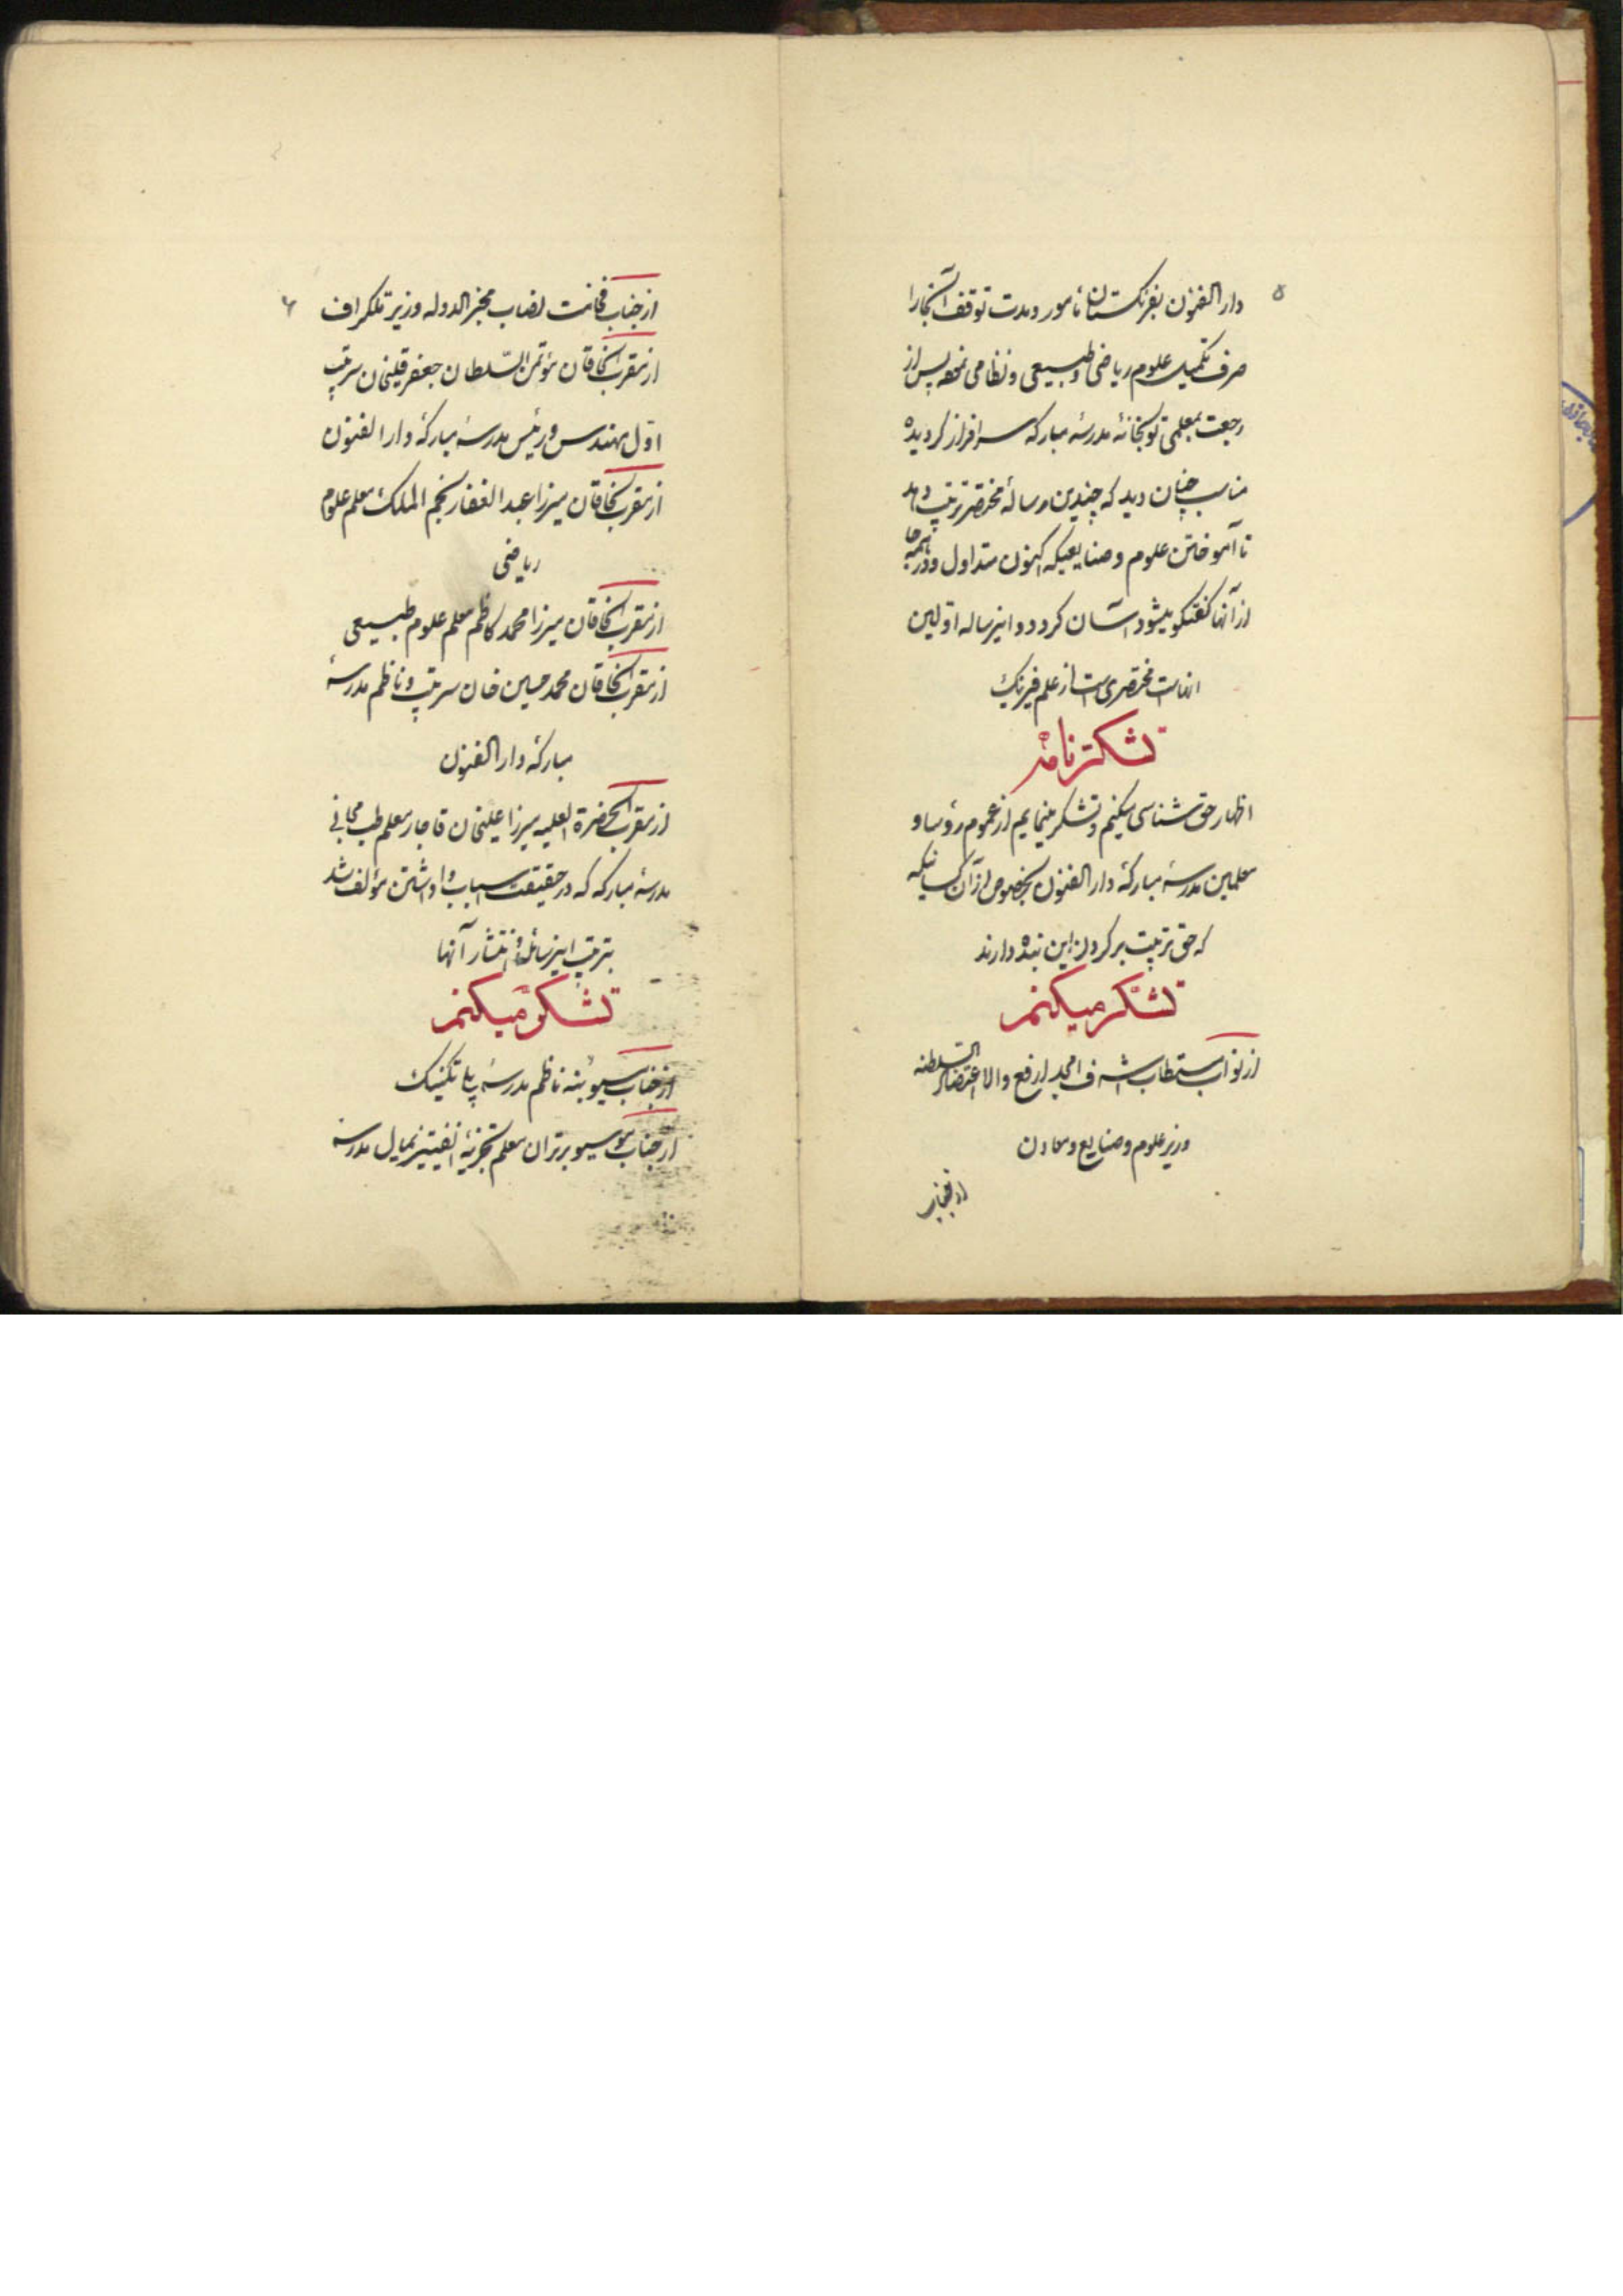 ۵
دار الفنون بفرنگستان مأمور و مدت توقف آنجا را
صرف تکمیل علوم ریاضی و طبیعی و نظامی نموده پس از
رجعت بمعلمی توپخانهٔ مدرسهٔ مبارکه سرافراز گردیده
مناسب چنان دید که چندین رسالهٔ مختصر ترتیب دهد
تا آموختن علوم و صنایعیکه اکنون متداول و در همه جا
از آنها گفتگو میشود آسان گردد و اینرساله اولین
انهاست مختصری است از علم فیزیک
تشکر نامه
اظهار حق شناسی میکنیم و تشکر مینمایم از عموم رؤسا و
معلمین مدرسهٔ مبارکهٔ دار الفنون بخصوص از آن کسانیکه
که حق تربیت بر گردن این بنده دارند
تشکر میکنم
از نواب مستطاب اشرف امجد ارفع والا اعتضاد السلطنه
وزیر علوم و صنایع و معادن
از جناب
۶
از جناب فخامت نصاب مخبر الدوله وزیر تلگراف
از مقرب الخاقان مؤتمن السلطان جعفر قلیخان سرتیپ
اول مهندس و رئیس مدرسهٔ مبارکهٔ دار الفنون
از مقرب الخاقان میرزا عبد الغفار نجم الملک معلم علوم
ریاضی
از مقرب الخاقان میرزا محمد کاظم معلم علوم طبیعی
از مقرب الخاقان محمد حسین خان سرتیپ و ناظم مدرسهٔ
مبارکهٔ دار الفنون
از مقرب الحضرة العلیه میرزا علیخان قاجار معلم طب مجانی
مدرسهٔ مبارکه که در حقیقت اسباب وا داشتن مؤلف شد
بترتیب اینرسائل و انتشار آنها
تشکر میکنم
از جناب مسیو ناظم مدرسهٔ پلی تکنیک
از جناب موسیو برتران معلم تجزیهٔ انفینیتزیمال مدرسه